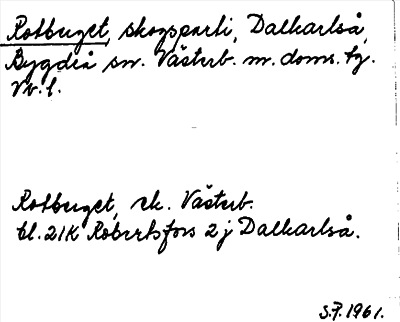 Rotberget, skogsparti, Dalkarlså,
Bygdeå sn. Västerb. m. doms. tg.
Vb. l.
Rotberget, ek. Västerb.
bl. 21K Robertsfors 2 j Dalkarlså.
S.F. 1961.